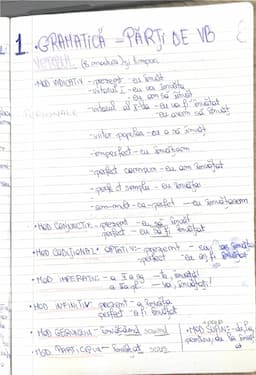 1. GRAMATICĂ - PĂRȚI DE VB
VERBUL (8 moduri și timpuri)
•MOD INDICATIV - prezent - eu învăț
-viitorul I - eu voi învăța
- eu am să învăț
PERSONALE -viitorul al II-lea - eu voi fi învățat
-viitor popular - eu o să învăț
-imperfect - eu învățam
-perfect compus - eu am învățat
-perfect simplu - eu învățai
-mai-mult-ca-perfect - eu învățasem
•MOD CONJUNCTIV - prezent - eu să învăț
perfect - eu să fi învățat
•MOD CONDIȚIONAL-OPTATIV - prezent - eu aș învăța
perfect - eu aș fi învățat
•MOD IMPERATIV - a II a sg - tu, învață!
a II a pl - voi, învățați!
•MOD INFINITIV prezent - a învăța
perfect - a fi învățat
•MOD GERUNZIU - învățând
•MOD SUPIN - de, la,
pentru, de la învățat
•MOD PARTICIPIU - învățat